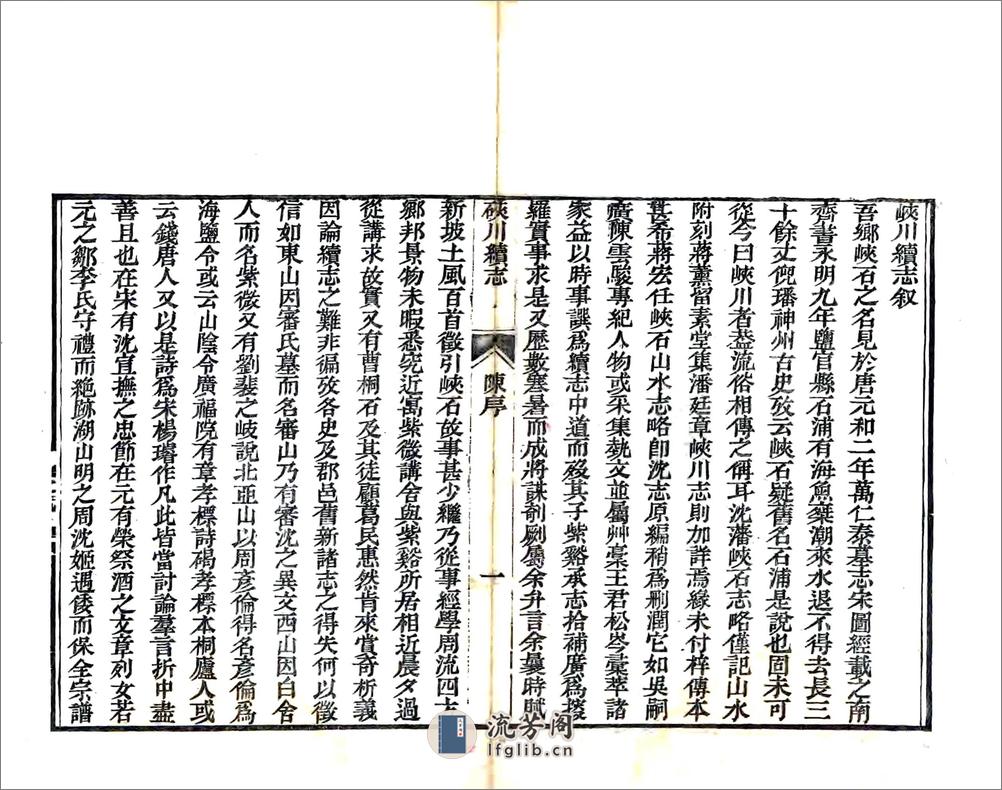 峽川續志叙
吾鄉峽石之名見於唐元和二年萬仁泰墓志宋圖經載之南
齊書永明九年鹽官縣石浦有海魚椉潮來水退不得去長三
十餘丈倪璠神州古史攷云峽石疑舊名石浦是說也固未可
從今曰峽川者葢流俗相傳之偁耳沈藩峽石志略僅記山水
附刻蔣薰留素堂集潘廷章峽川志則加詳焉緣未付梓傳本
甚希蔣宏任峽石山水志略卽沈志原編稍爲刪潤它如吳嗣
廣陳雲駿專紀人物或采集埶文並屬艸稾王君松岑彙萃諸
家益以時事譔爲續志中道而歿其子紫谿承志拾補廣爲搜
羅實事求是又歷數寒暑而成將謀剞劂屬余弁言余曩時賦
硤川續志
陳序
一
新坡土風百首徵引峽石故事甚少繼乃從事經學周流四方
鄉邦景物未暇悉究近寓紫微講舍與紫谿所居相近晨夕過
從講求故實又有曹桐石及其徒顧葛民惠然肯來賞奇析義
因論續志之難非徧攷各史及郡邑舊新諸志之得失何以徵
信如東山因審氏墓而名審山乃有審沈之異文西山因白舍
人而名紫微又有劉裴之岐說北亚山以周彥倫得名彥倫爲
海鹽令或云山陰令廣福院有章孝標詩碣孝標本桐廬人或
云錢唐人又以是詩爲宋楊璿作凡此皆當討論羣言折中盡
善且也在宋有沈直撫之忠節在元有榮祭酒之文章列女若
元之鄒李氏守禮而絶跡湖山明之周沈姬遇倭而保全宗譜
流芳阁
lfglib.cn